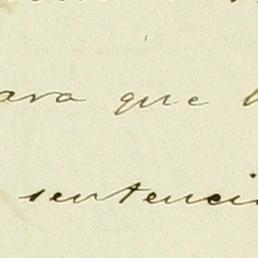 ara que
sentenci